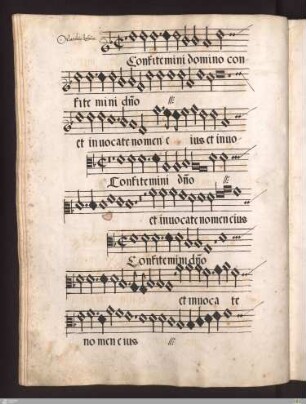 Confitemini domino con
fite mini dño
et invocate nomen e ius et invo
Confitemini dño
et invocate nomen eius
Confitemini dño
et invoca te
nomen eius